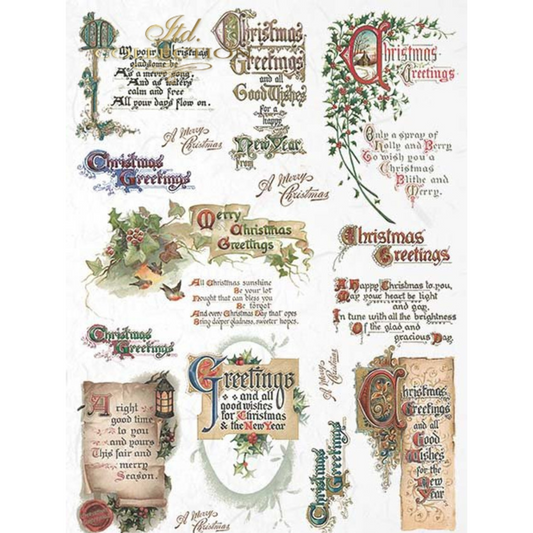 Itd.
May your Christmas
gladsome be
As a merry song,
And as waters
calm and free
All your days flow on.
Christmas
Greetings
and all
Good Wishes
for a
happy
New Year
from
Christmas
Greetings
Only a spray of
Holly and Berry
To wish you a
Christmas
Blithe and
Merry.
A Merry
Christmas
Christmas
Greetings
A Merry
Christmas
Merry
Christmas
Greetings
All Christmas sunshine
Be your lot
Nought that can bless you
Be forgot
And every Christmas Day that opes
Bring deeper gladness, sweeter hopes.
Christmas
Greetings
A Happy Christmas to you,
May your heart be light
and gay,
In tune with all the brightness
Of the glad and
gracious Day.
Christmas
Greetings
A
right
good time
to you
and yours
This fair and
merry
Season.
Greetings
and all
good wishes
for Christmas
& the New Year
A Merry
Christmas
Christmas
Greetings
Christmas
Greetings
and all
Good
Wishes
for the
New
Year
A Merry
Christmas